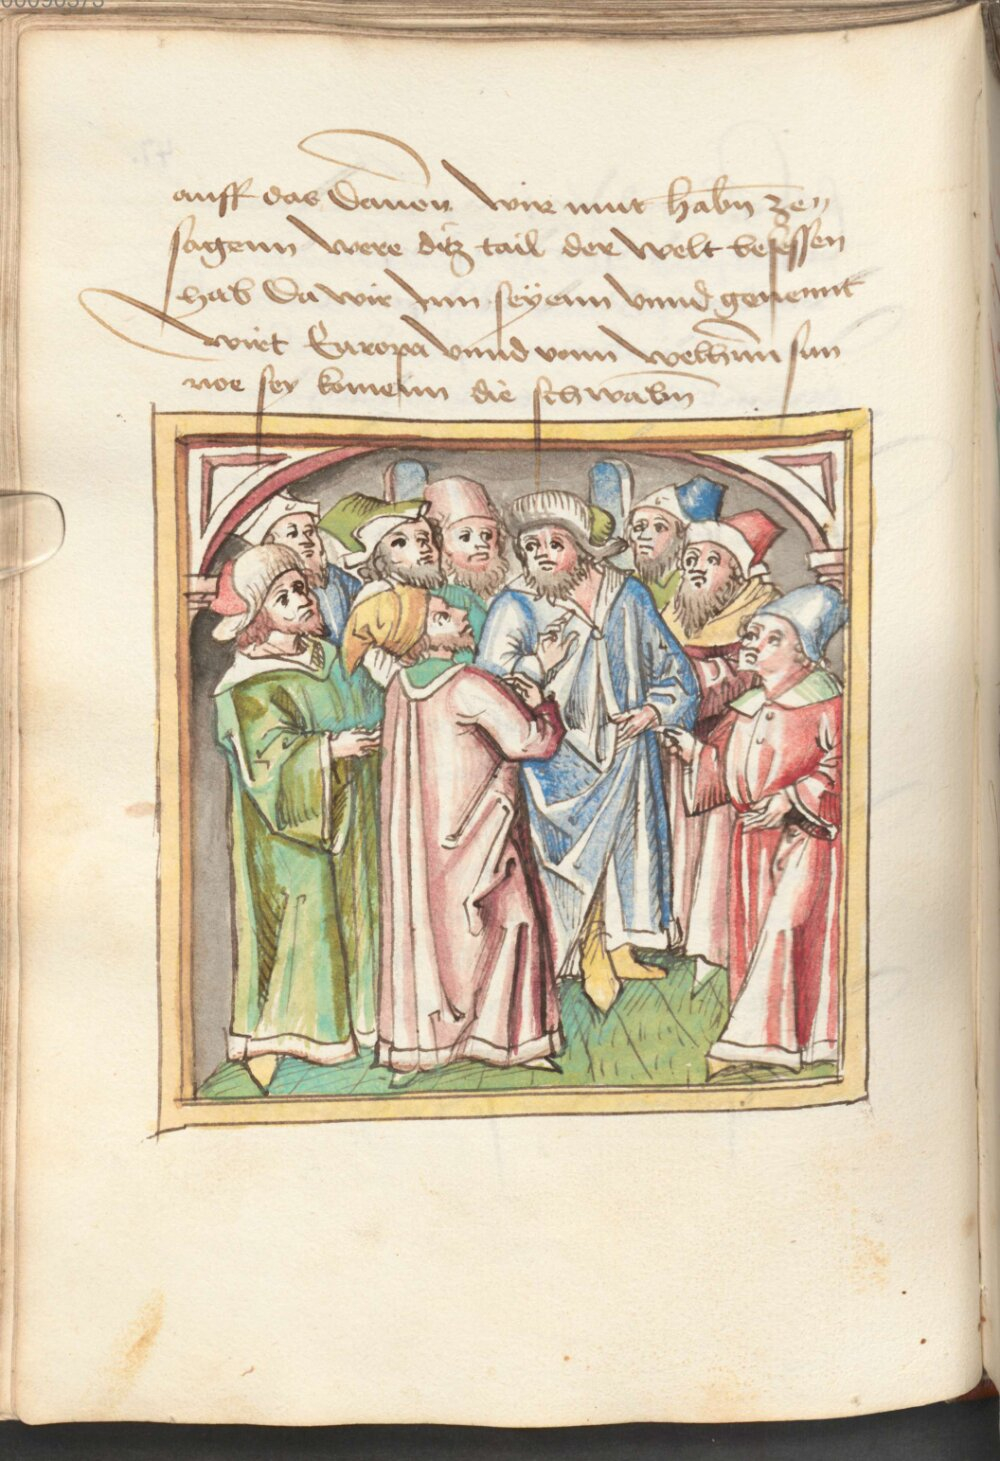 00090373
auff das Dauon wir mut habn ze
sagenn were ditz tail der welt besessen
hab Da wir inn seyenn vnnd genennt
wirt Europa vnnd vonn welhnn sun
noe sey komenn die schwabn